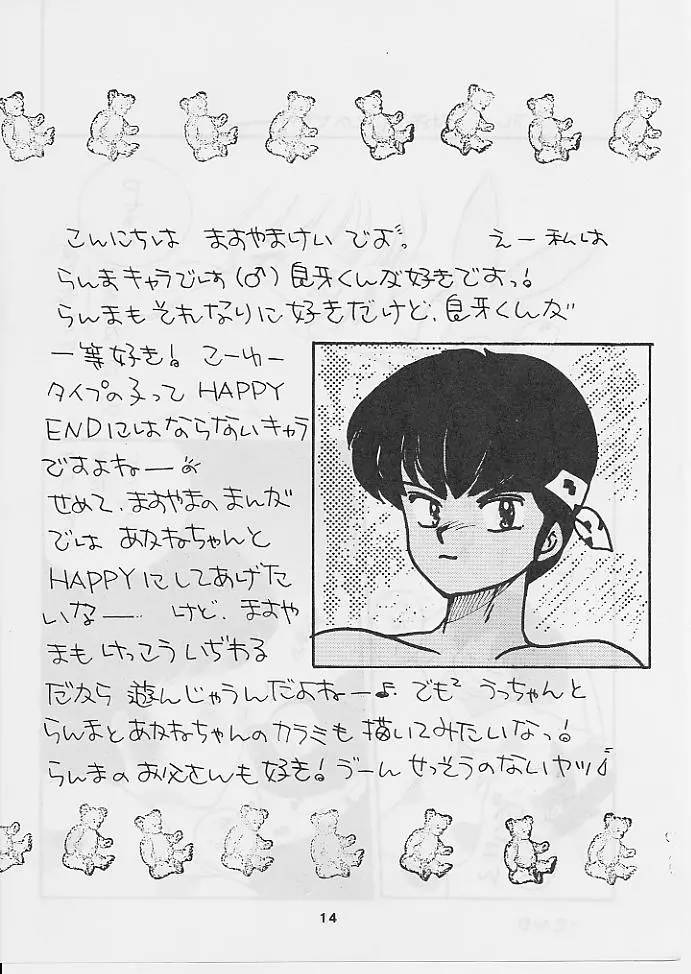 こんにちは ますやまけい です。 えー 私は
らんまキャラでは(♂)良牙くんが好きですっ!
らんまもそれなりに好きだけど、良牙くんが
一等好き! こーゆー
タイプの子って HAPPY
ENDにはならないキャラ
ですよねー
せめて、ますやまのまんが
では あかねちゃんと
HAPPYにしてあげた
いなー けど、ますや
まも けっこう いぢわる
だから 遊んじゃうんだよねー♪ でも² うっちゃんと
らんまとあかねちゃんのカラミも描いてみたいなっ!
らんまのお父さんも好き! うーん せっそうのないヤツ♪
14